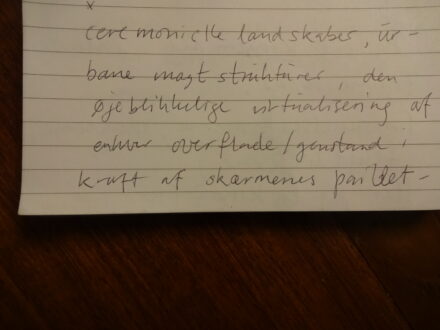 x
ceremonielle landskaber, ur-
bane magtstrukturer, den
øjeblikkelige virtualisering af
enhver overflade/genstand i
kraft af skærmenes paillet-